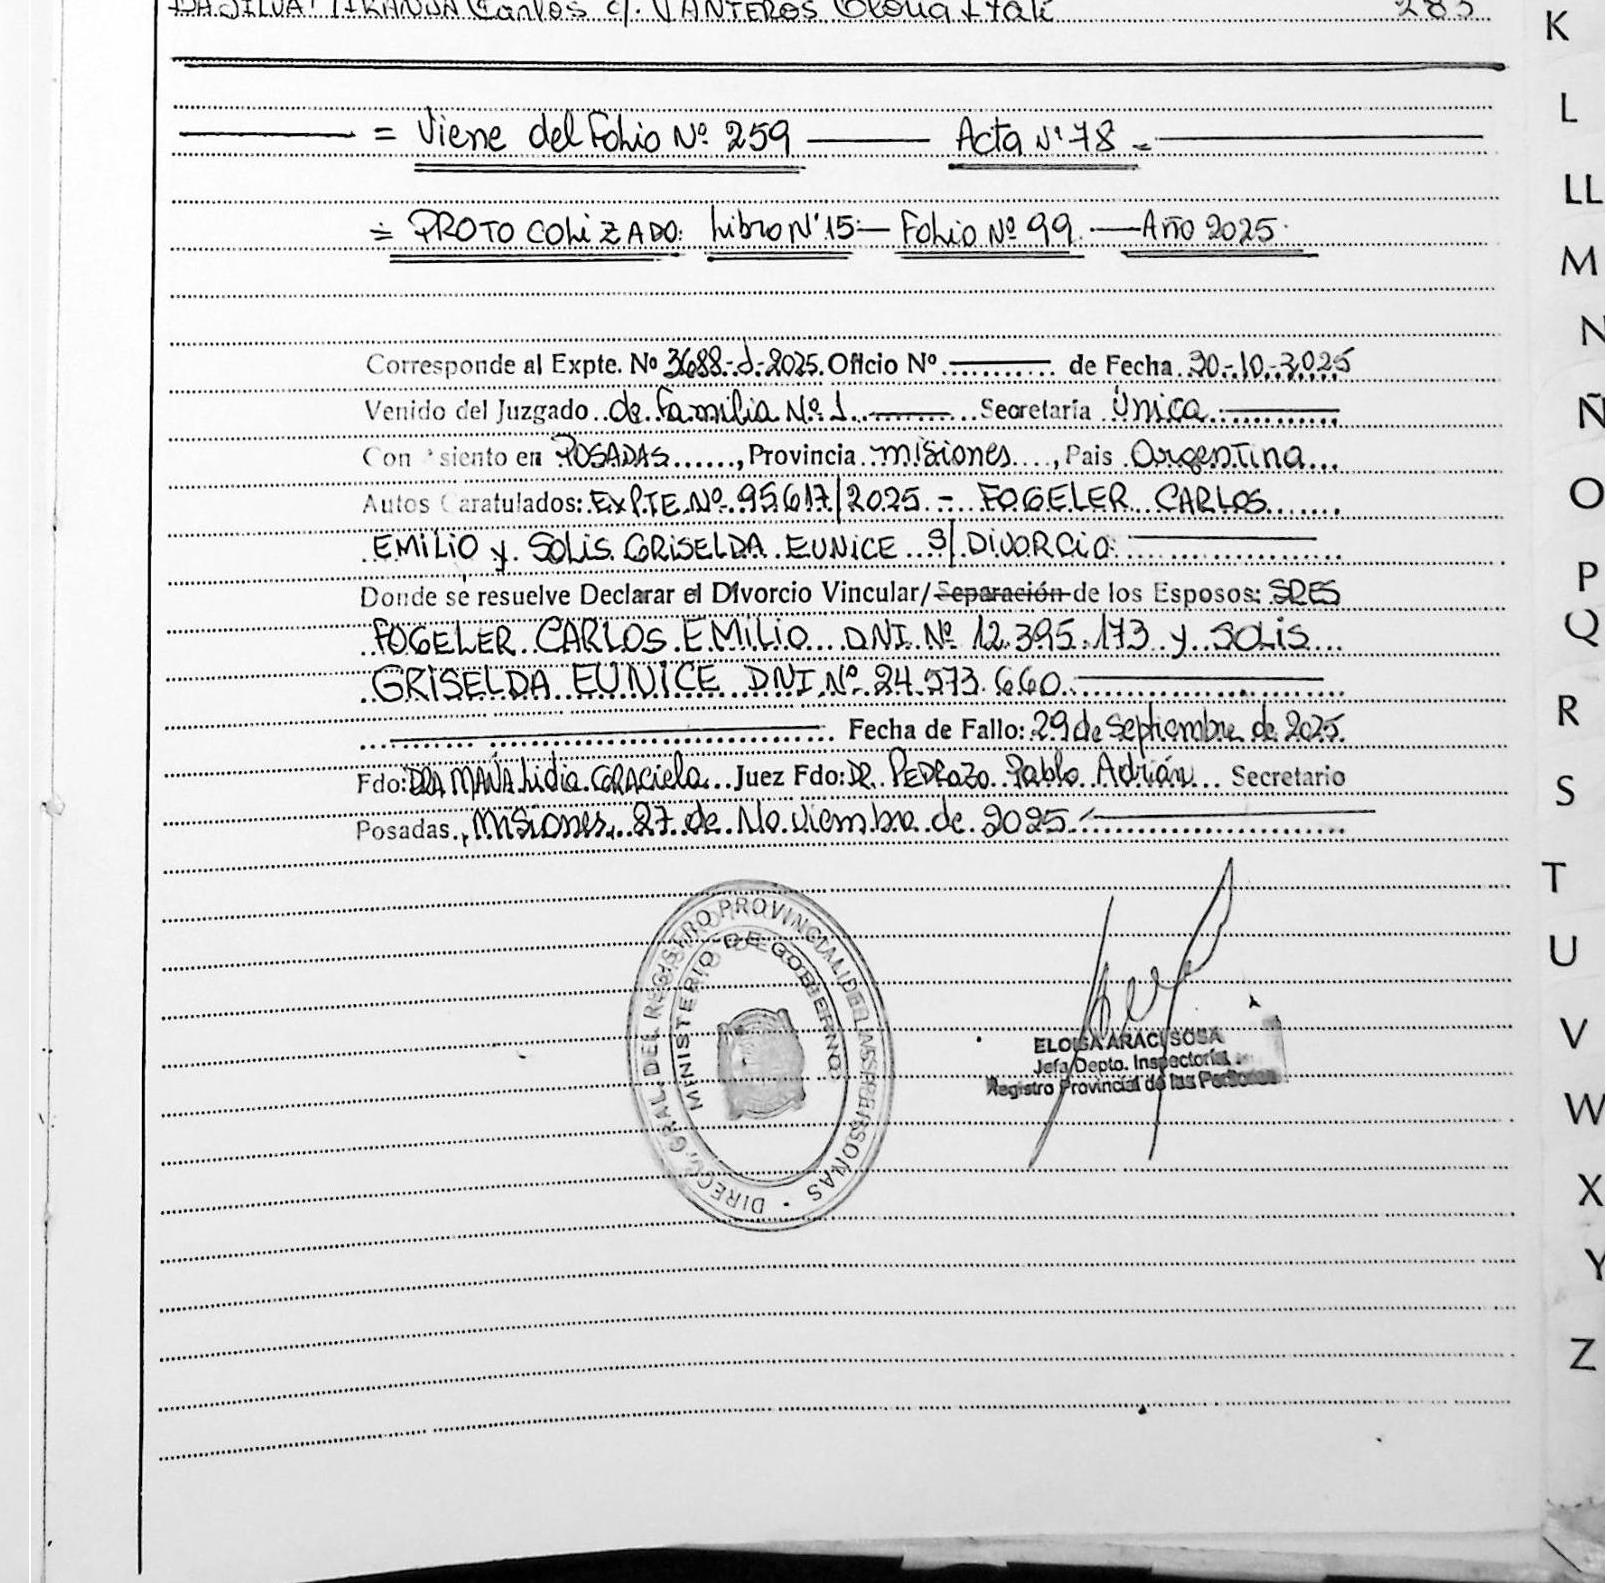 Carlos c/. 283
= Viene del Folio Nº 259 — Acta Nº 78 =
= PROTOCOLIZADO: Libro Nº 15 — Folio Nº 99. — Año 2025.
Corresponde al Expte. Nº 3688-J-2025. Oficio Nº de Fecha 30-10-2025
Venido del Juzgado de Familia Nº 1. Secretaría Única.
Con Asiento en POSADAS, Provincia Misiones, Pais Argentina
Autos Caratulados: EXPTE Nº 95617/2025 - FOGELER CARLOS
EMILIO y SOLIS GRISELDA EUNICE S/ DIVORCIO.
Donde se resuelve Declarar el Divorcio Vincular/Separación de los Esposos: SRES
FOGELER CARLOS EMILIO DNI Nº 12.395.173 y SOLIS
GRISELDA EUNICE DNI Nº 24.573.660.
Fecha de Fallo: 29 de Septiembre de 2025.
Fdo: DRA MAÑA Lidia GRAciela Juez Fdo: DR. PEDRAZO Pablo Adrián Secretario
Posadas, Misiones, 27 de Noviembre de 2025.
DIRECC. GRAL. DEL REGISTRO PROVINCIAL DE LAS PERSONAS
MINISTERIO DE GOBIERNO
ELOISA ARACI SOSA
Jefa Depto. Inspectoría
Registro Provincial de las Personas
K
L
LL
M
N
Ñ
O
P
Q
R
S
T
U
V
W
X
Y
Z